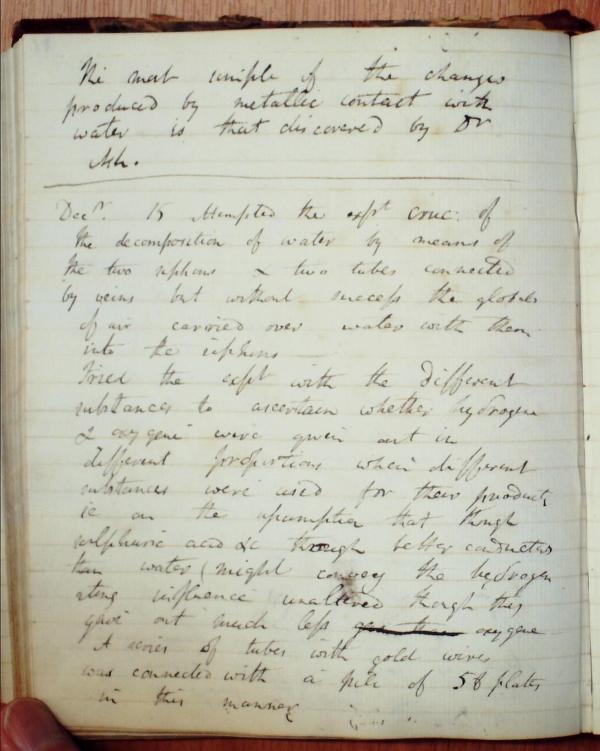 The most simple of the changes
produced by metallic contact with
water is that discovered by Dr
Ash.
Decr. 15 Attempted the expt cruc: of
the decomposition of water by means of
the two siphons & two tubes connected
by veins but without success the globules
of air carried over water with them
into the siphons
Tried the expt with the different
substances to ascertain whether hydrogene
& oxygene were given out in
different proportions when different
substances were used for their products
ie on the assumption that though
sulphuric acid &c though better conductors
than water (might convey the hydrogen
ating influence unaltered though they
gave out much less oxygene
A series of tubes with gold wires
was connected with a pile of 58 plates
in this manner